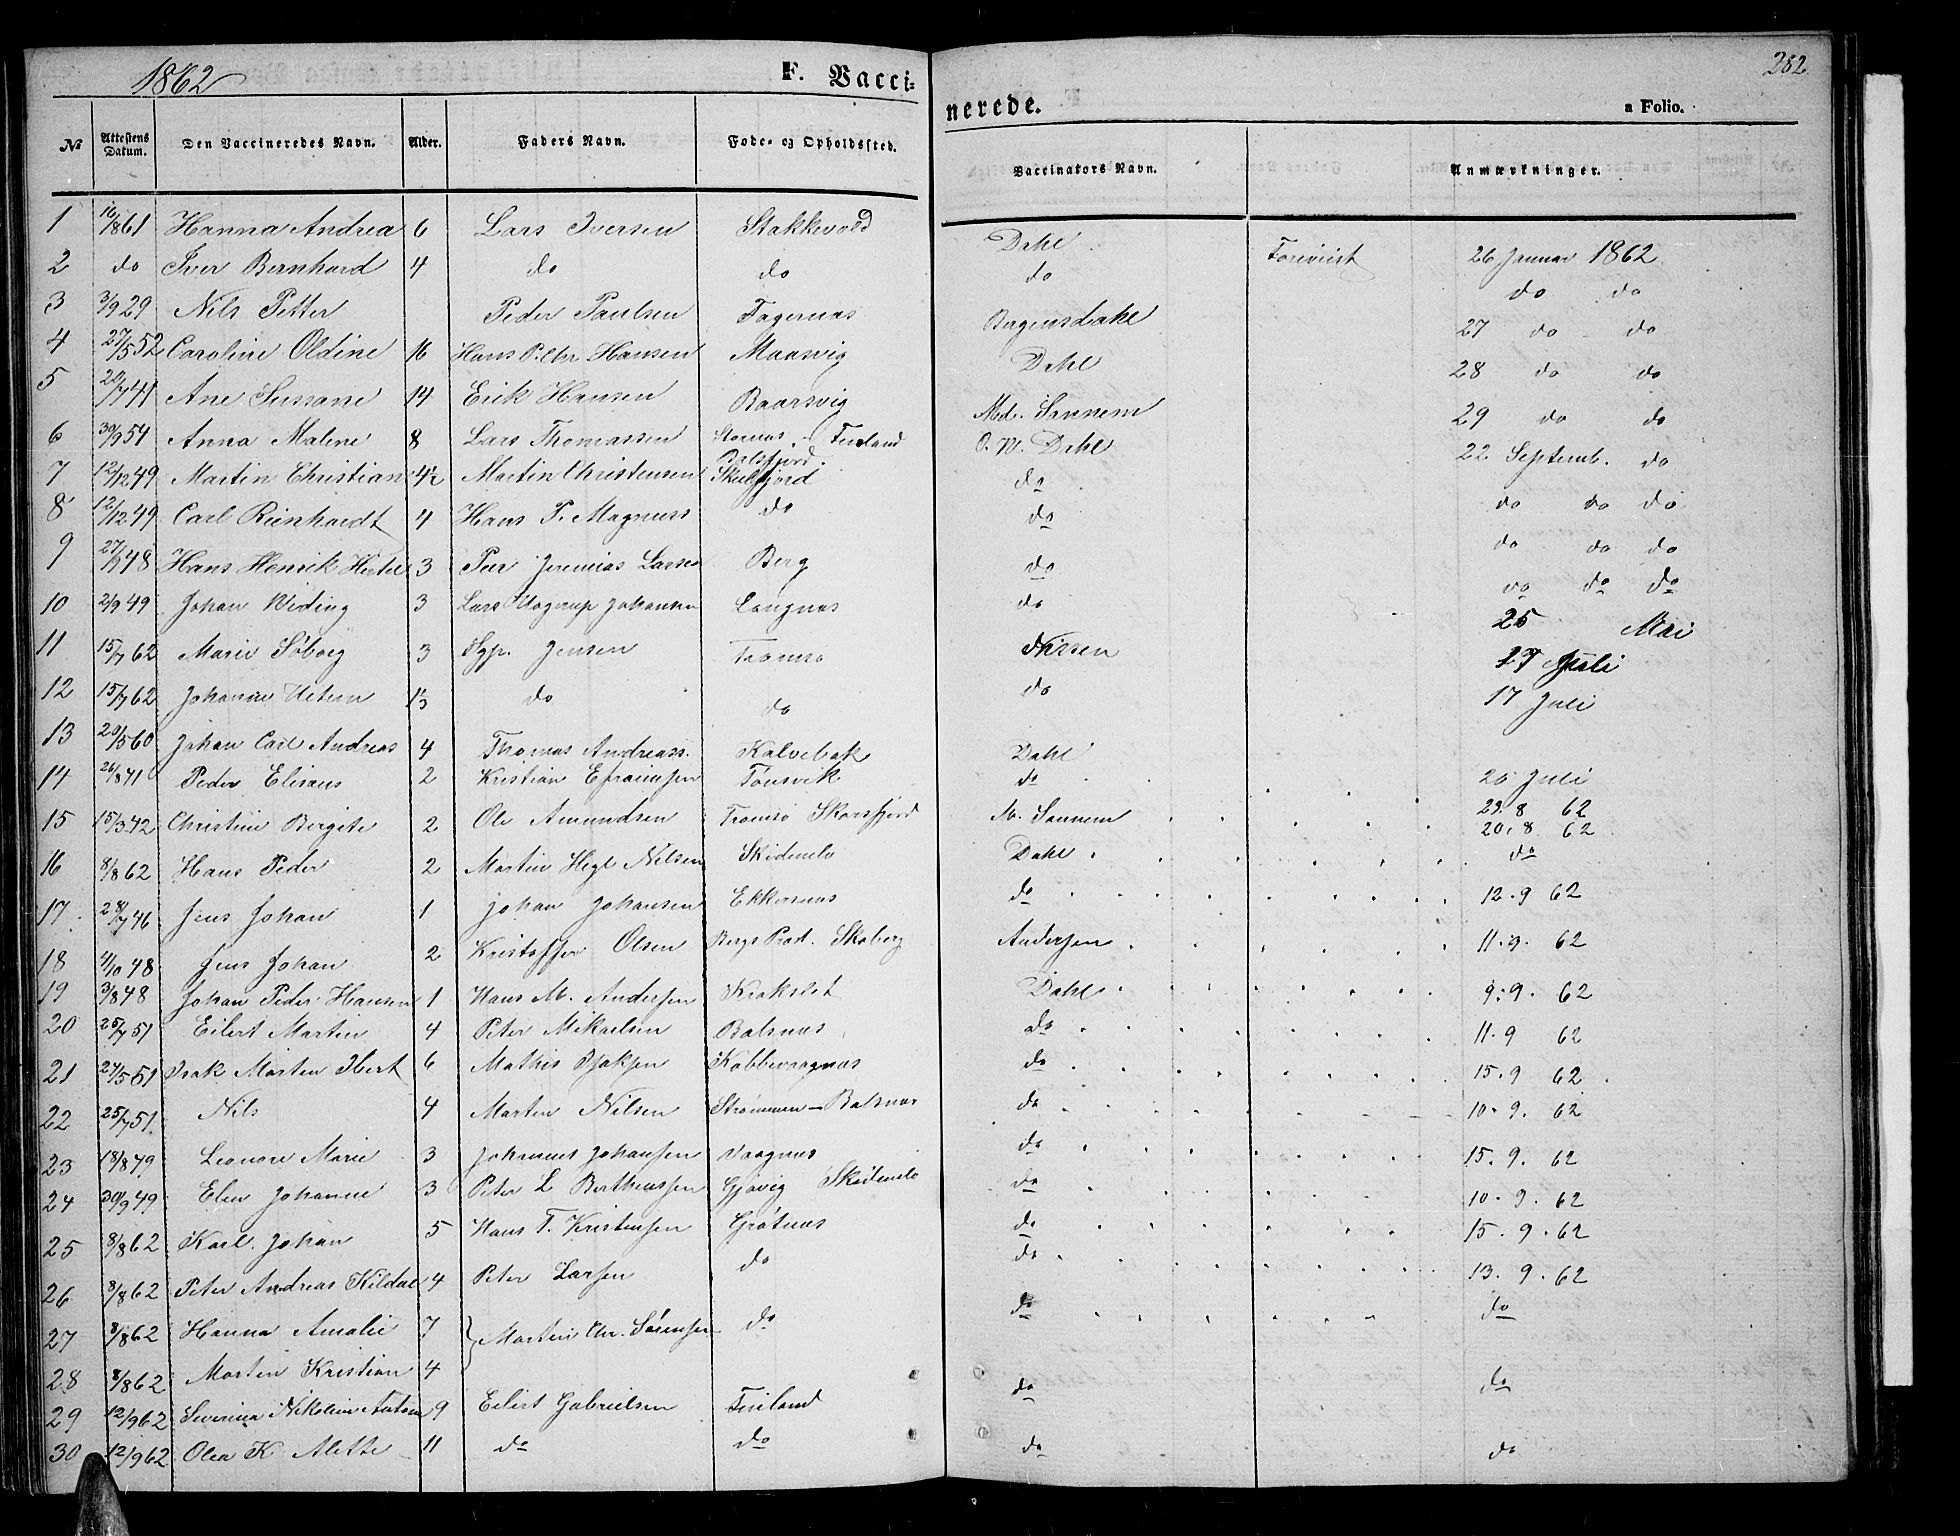 1862
F. Vacci=
nerede.
a Folio.
282
№ Attestens Datum. Den Vaccineredes Navn. Alder. Faders Navn. Føde- og Opholdssted. Vaccinators Navn. Anmærkninger.
1 16/8 61 Hanna Andrea 6 Lars Iversen Stakkevold Dahl Forevist 26 Januar 1862
2 do Iver Bernhard 4 do do do do do
3 3/9 29 Nils Petter Peder Paulsen Fagernæs 27 do do
4 27/5 52 Caroline Oldine 16 Hans Peter Hansen Maasvig Dahl 28 do do
5 20/7 41 Ane Sussane 14 Erik Hansen Baarsvig Md. Sannem 29 do do
6 30/9 54 Anna Maline 8 Lars Thomassen O. W. Dahl 22 Septemb. do
7 12/12 49 Martin Christian 4½ Martin Christensen Balsfjord do do do do
8 12/12 49 Carl Reinhardt 4 Hans P. Magnuss do do do do do
9 27/9 48 Hans Henrik 3 Peer Jeremias Larsen Berg do do do do
10 2/9 49 Johan Weding 3 Lars Johansen Langnæs do 25 Mai
11 15/7 62 Marie Søborg 3 Jensen Tromsø Nissen 17 Juli
12 15/7 62 Johanne 1½ do do do 17 Juli
13 20/5 60 Johan Carl Andreas 4 Thomas Andreass. Kalvebak Dahl
14 26/8 41 Peder Elisæus 2 Kristian Efraimsen Tønsvik do 20 Juli
15 15/3 42 Christine Bergite 2 Ole Amundsen Tromsø Skarsfjord M. Sannem 23. 8 62
20. 8 62
16 8/8 62 Hans Peder 2 Martin Hegl Nilsen Skødenelv Dahl do
17 28/7 46 Jens Johan 1 Johan Johansen Ekkernæs do 12. 9 62
18 4/10 48 Jens Johan 2 Kristoffer Olsen Bergs Præst. Skaberg Andersen 11. 9. 62
19 3/8 48 Johan Peder Hansen 1 Hans M. Andersen Krokslet Dahl 9. 9. 62
20 25/7 51 Eilert Martin 4 Peter Mikaelsen Balsnæs do 11. 9 62
21 24/5 51 Isak Morten Ibert 6 Mathis Isaksen Kobbevaagnæs do 15. 9 62
22 25/7 51 Nils 4 Morten Nilsen Strømmen - Balsnæs do 10. 9. 62
23 18/8 49 Leonore Marie 3 Johannes Johansen Vaagnæs do 15. 9. 62
24 30/9 49 Elen Johanne 3 Peter L Bertheussen Gjøvig Skødenelv do 10. 9. 62
25 8/8 62 Karl Johan 5 Hans T. Kristensen Grøtnæs do 15. 9. 62
26 8/8 62 Peter Andreas Kildal 4 Peter Larsen do do 13. 9. 62
27 8/8 62 Hanna Amalie 7 Martin Chr. Sørensen do do do
28 8/8 62 Martin Kristian 4
29 12/9 62 Severine Nikoline Antona 9 Eilert Gabrielsen Finland do do
30 12/9 62 Olea K Alette 11 do do do do